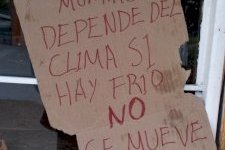 DEPENDE DEL
CLIMA SI
HAY FRIO
NO
SE MUEVE